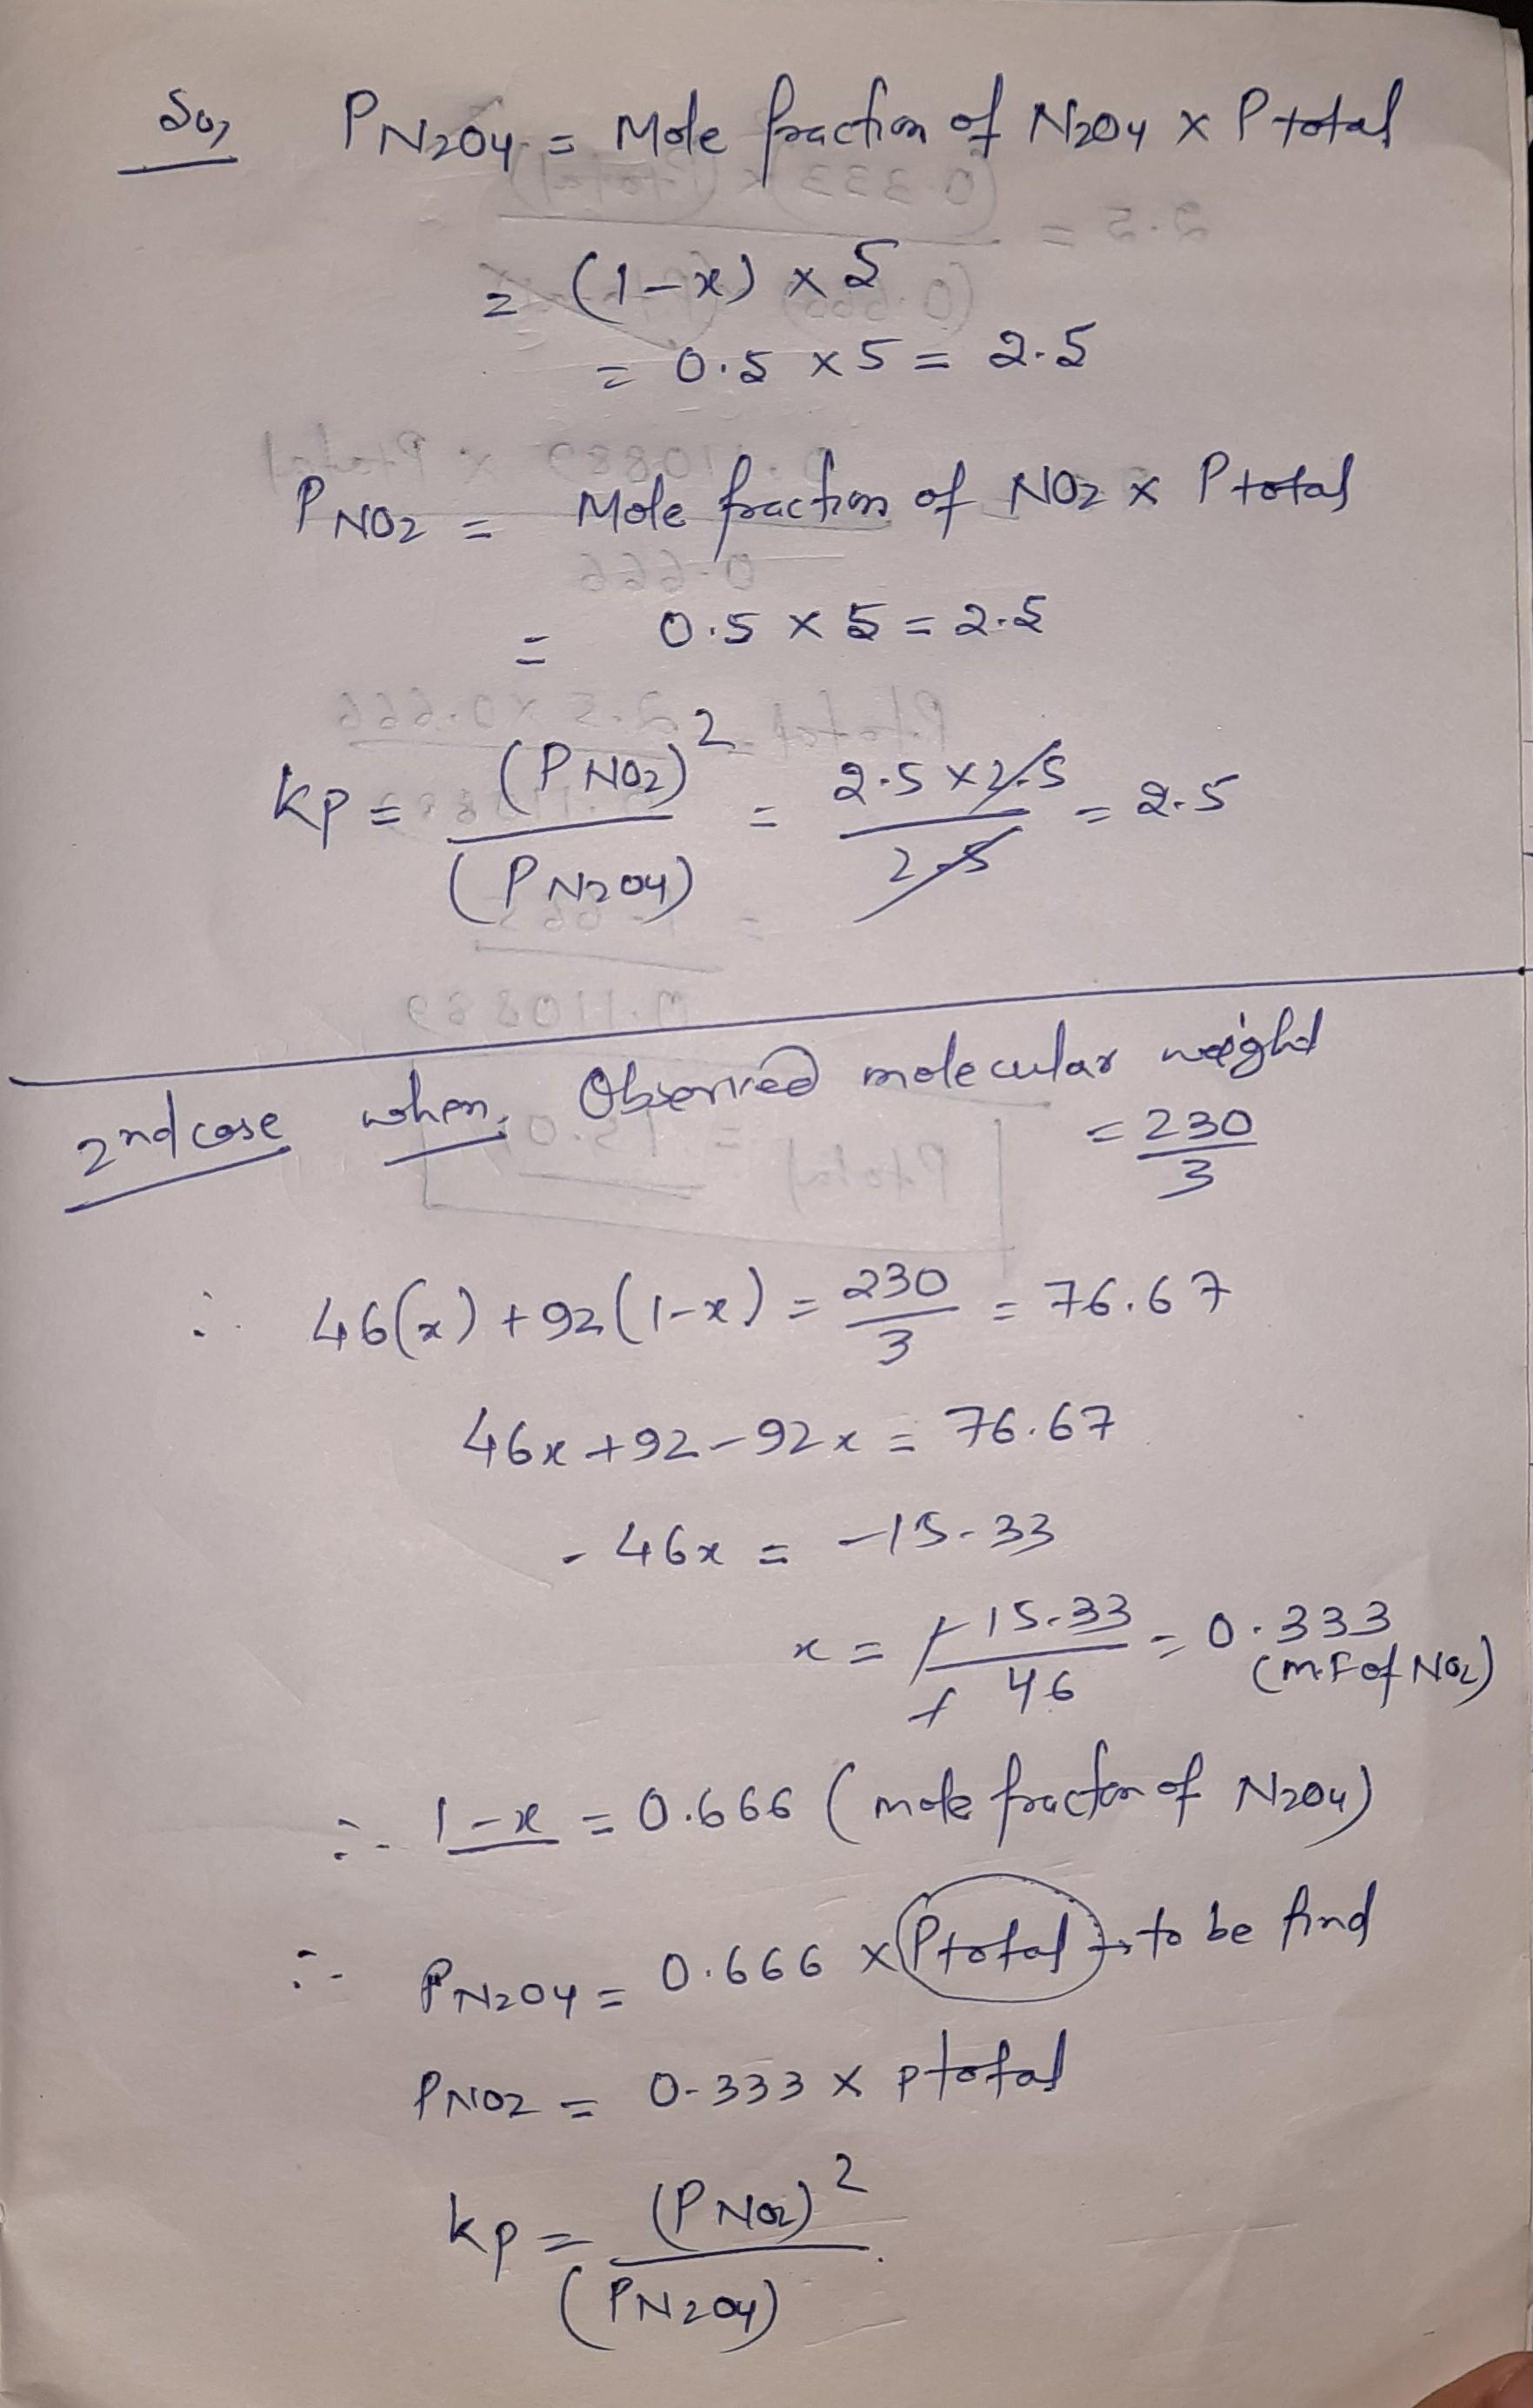 So, PN2O4 = Mole fraction of N2O4 x Ptotal
= (1-x) x 5
= 0.5 x 5 = 2.5
PNO2 = Mole fraction of NO2 x Ptotal
= 0.5 x 5 = 2.5
kp = (PNO2)² / (PN2O4) = 2.5 x 2.5 / 2.5 = 2.5
2nd case when, Observed molecular weight = 230/3
∴ 46(x) + 92(1-x) = 230/3 = 76.67
46x + 92 - 92x = 76.67
- 46x = -15.33
x = +15.33 / +46 = 0.333 (m.F of NO2)
∴ 1-x = 0.666 (mole fracton of N2O4)
∴ PN2O4 = 0.666 x Ptotal → to be find
PNO2 = 0.333 x ptotal
kp = (PNO2)² / (PN2O4)